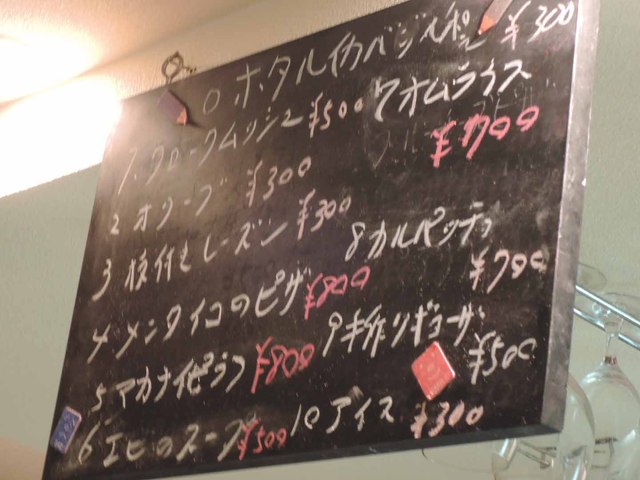 0 ホタルイカバジルポン酢 ¥300
1. クロックムッシュ ¥500
2 オリーブ ¥300
3 枝付きレーズン ¥300
4 メンタイコのピザ ¥800
5 マカナイピラフ ¥800
6 エビのスープ ¥500
7 オムライス
¥1700
8 カルパッチョ
¥700
9 手作りギョーザ
¥500
10 アイス
¥300